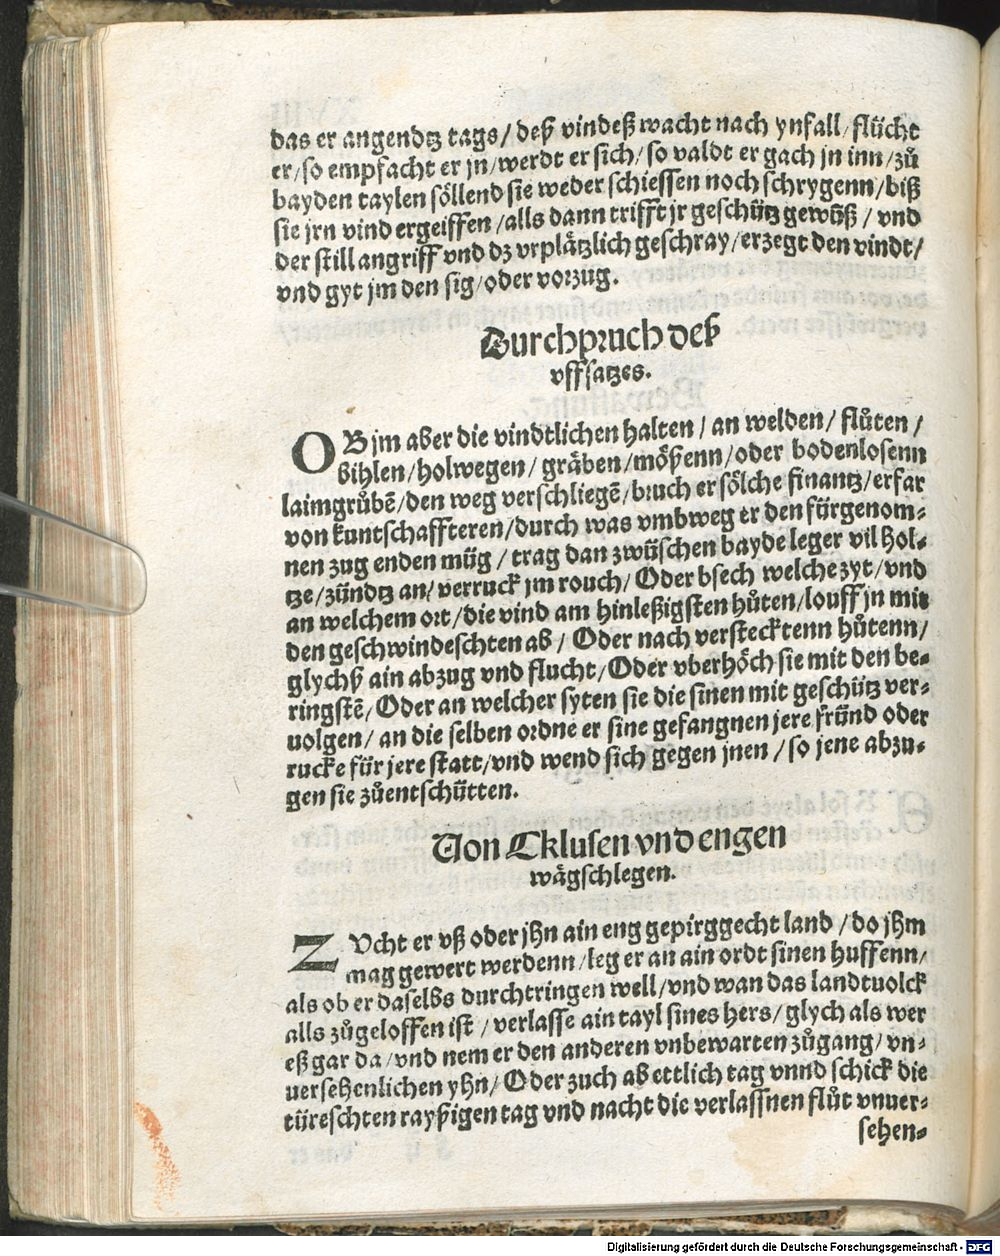 das er angendtz tags / deß vindeß wacht nach ynfall / flücht
er / so empfacht er jn / werdt er sich / so valdt er gach jn inn / zů
bayden taylen söllend sie weder schiessen noch schrygenn / biß
sie jrn vind ergeiffen / alls dann trifft jr geschütz gewüß / vnd
der still angriff vnd dz vrplätzlich geschray / erzegt den vindt /
vnd gyt jm den sig / oder vorzug.
Durchpruch deß
vffsatzes.
OB jm aber die vindtlichen halten / an welden / flůten /
bihlen / holwegen / gräben / mößenn / oder bodenlosenn
laimgrůbē / den weg verschliegē / bruch er sölche finantz / erfar
von kuntschaffteren / durch was vmbweg er den fürgenom⸗
nen zug enden müg / trag dan zwüschen bayde leger vil hol⸗
tze / zündtz an / verruck jm rouch / Oder bsech welche zyt / vnd
an welchem ort / die vind am hinleßigsten hůten / louff jn mit
den geschwindeschten ab / Oder nach verstecktenn hůtenn /
glychß ain abzug vnd flucht / Oder vberhöch sie mit den be⸗
ringstē / Oder an welcher syten sie die sinen mit geschütz ver⸗
uolgen / an die selben ordne er sine gefangnen jere fründ oder
rucke für jere statt / vnd wend sich gegen jnen / so jene abzu⸗
gen sie zůentschütten.
Von Cklusen vnd engen
wägschlegen.
ZVcht er vß oder jhn ain eng gepirggecht land / do jhm
mag gewert werdenn / leg er an ain ordt sinen huffenn /
als ob er daselbs durchtringen well / vnd wan das landtuolck
alls zůgeloffen ist / verlasse ain tayl sines hers / glych als wer
eß gar da / vnd nem er den anderen vnbewarten zůgang / vn⸗
uersehenlichen yhn / Oder zuch ab ettlich tag vnnd schick die
türeschten rayßigen tag vnd nacht die verlassnen flůt vnuer⸗
sehen⸗
Digitalisierung gefördert durch die Deutsche Forschungsgemeinschaft - DFG